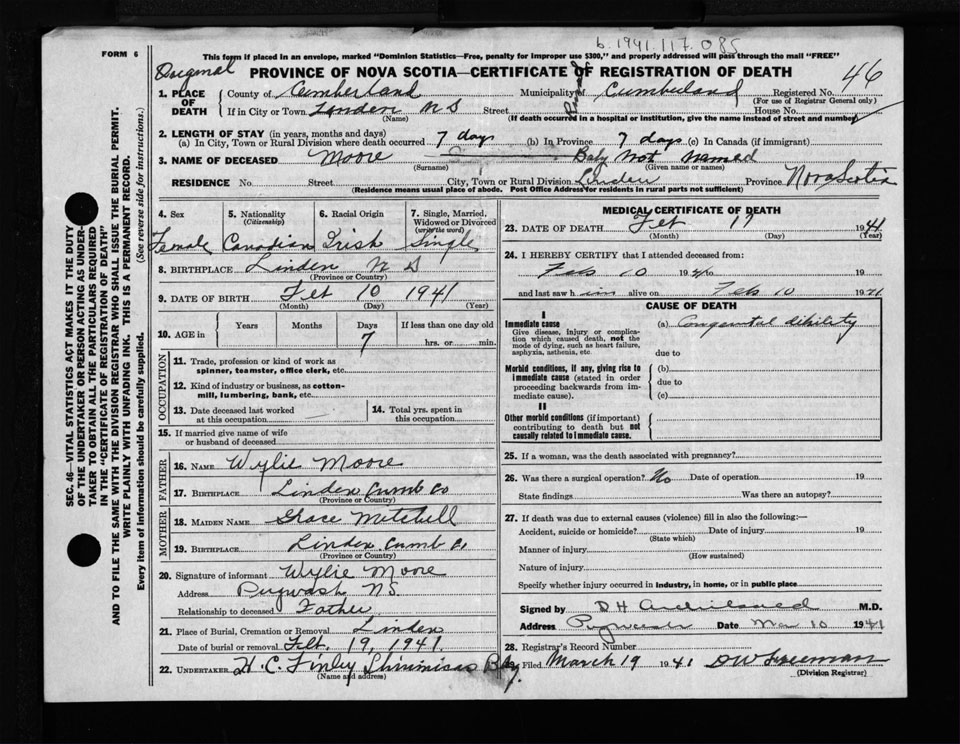 b. 1941. 117. 085
FORM 6
This form if placed in an envelope, marked "Dominion Statistics—Free, penalty for improper use $300," and properly addressed will pass through the mail "FREE"
Original
PROVINCE OF NOVA SCOTIA—CERTIFICATE OF REGISTRATION OF DEATH
46
1. PLACE OF DEATH
County of Cumberland Municipality of Cumberland Registered No.
(For use of Registrar General only)
If in City or Town Linden N S Street House No.
(Name) (If death occurred in a hospital or institution, give the name instead of street and number)
2. LENGTH OF STAY (in years, months and days)
(a) In City, Town or Rural Division where death occurred 7 days (b) In Province 7 days (c) In Canada (if immigrant)
3. NAME OF DECEASED Moore Baby Not Named
(Surname) (Given name or names)
RESIDENCE No. Street City, Town or Rural Division Linden Province Nova Scotia
(Residence means usual place of abode. Post Office Address for residents in rural parts not sufficient)
4. Sex 5. Nationality (Citizenship) 6. Racial Origin 7. Single, Married, Widowed or Divorced (write the word)
Female Canadian Irish Single
8. BIRTHPLACE Linden N S
(Province or Country)
9. DATE OF BIRTH Feb 10 1941
(Month) (Day) (Year)
10. AGE in Years Months Days If less than one day old
7 hrs. or min.
OCCUPATION
11. Trade, profession or kind of work as spinner, teamster, office clerk, etc.
12. Kind of industry or business, as cotton-mill, lumbering, bank, etc.
13. Date deceased last worked at this occupation
14. Total yrs. spent in this occupation
15. If married give name of wife or husband of deceased
FATHER
16. NAME Wylie Moore
17. BIRTHPLACE Linden Cumb Co
(Province or Country)
MOTHER
18. MAIDEN NAME Grace Mitchell
19. BIRTHPLACE Linden Cumb Co
(Province or Country)
20. Signature of informant Wylie Moore
Address Pugwash N.S.
Relationship to deceased Father
21. Place of Burial, Cremation or Removal Linden
Date of burial or removal Feb. 19, 1941.
22. UNDERTAKER H. C. Finley
(Name and address)
MEDICAL CERTIFICATE OF DEATH
23. DATE OF DEATH Feb 17 1941
(Month) (Day) (Year)
24. I HEREBY CERTIFY that I attended deceased from:
Feb 10 1941 to 19
and last saw him alive on Feb 10 1941
CAUSE OF DEATH
I
Immediate cause
Give disease, injury or complication which caused death, not the mode of dying, such as heart failure, asphyxia, asthenia, etc.
(a) Congenital debility
due to
Morbid conditions, if any, giving rise to immediate cause (stated in order proceeding backwards from immediate cause).
(b)
due to
(c)
II
Other morbid conditions (if important) contributing to death but not causally related to immediate cause.
25. If a woman, was the death associated with pregnancy?
26. Was there a surgical operation? No Date of operation 19
State findings Was there an autopsy?
27. If death was due to external causes (violence) fill in also the following:—
Accident, suicide or homicide? Date of injury 19
(State which)
Manner of injury
(How sustained)
Nature of injury
Specify whether injury occurred in industry, in home, or in public place
Signed by D H M.D.
Address Pugwash Date Mar 10 1941
28. Registrar's Record Number
29. Filed March 19 1941 D W Freeman
(Division Registrar)
SEC. 46—VITAL STATISTICS ACT MAKES IT THE DUTY
OF THE UNDERTAKER OR PERSON ACTING AS UNDERTAKER TO OBTAIN ALL THE PARTICULARS REQUIRED
IN THE "CERTIFICATE OF REGISTRATION OF DEATH"
AND TO FILE THE SAME WITH THE DIVISION REGISTRAR WHO SHALL ISSUE THE BURIAL PERMIT.
WRITE PLAINLY WITH UNFADING INK. THIS IS A PERMANENT RECORD.
Every item of information should be carefully supplied. (See reverse side for instructions.)